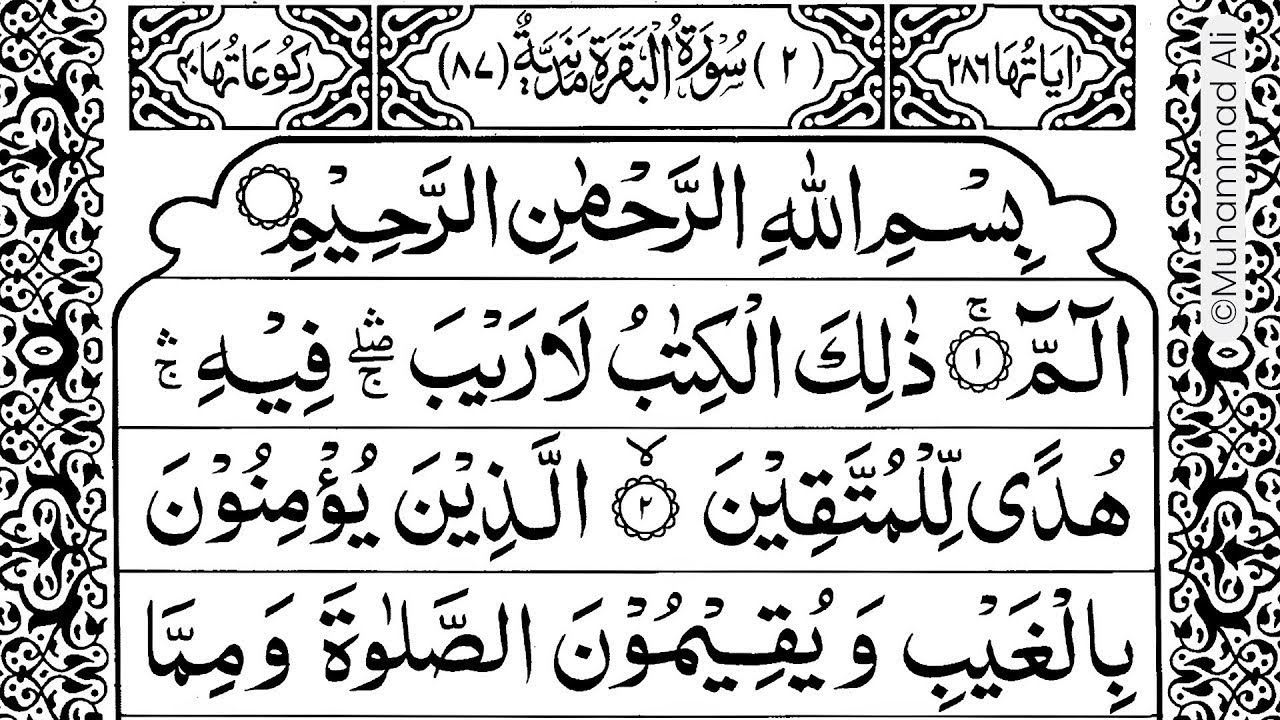 اٰيَاتُهَا ٢٨٦
(٢) سُوْرَةُ الْبَقَرَةِ مَدَنِيَّةٌ (٨٧)
رُكُوْعَاتُهَا ٤٠
بِسْمِ اللهِ الرَّحْمٰنِ الرَّحِيْمِ
الٓمّٓ ۚ ١ ذٰلِكَ الْكِتٰبُ لَا رَيْبَ ۛۖۚ فِيْهِ ۛۚ
هُدًى لِّلْمُتَّقِيْنَ ۙ ٢ الَّذِيْنَ يُؤْمِنُوْنَ
بِالْغَيْبِ وَيُقِيْمُوْنَ الصَّلٰوةَ وَمِمَّا
©Muhammad Ali